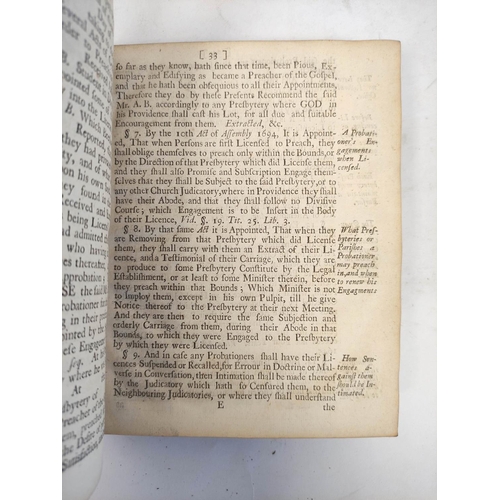 [ 33 ]
so far as they know, hath since that time, been Pious, Ex-
emplary and Edifying as became a Preacher of the Gospel,
and that he hath been obsequious to all their Appointments,
Therefore they do by these Presents Recommend the said
Mr. A. B. accordingly to any Presbytery where GOD in
his Providence shall cast his Lot, for all due and suitable
Encouragement from them. Extracted, &c.
§ 7. By the 10th Act of Assembly 1694, it is Appoint-
ed, That when Persons are first Licensed to Preach, they
shall oblige themselves to preach only within the Bounds, or
by the Direction of that Presbytery which did License them,
and they shall also Promise and Subscription Engage them-
selves that they shall be Subject to the said Presbytery, or to
any other Church Judicatory, where in Providence they shall
have their Abode, and that they shall follow no Divisive
Course; which Engagement is to be Insert in the Body
of their Licence, Vid. §. 19. Tit. 25. Lib. 3.
A Probati-
oner's En-
gagements
when Li-
censed.
§ 8. By that same Act it is Appointed, That when they
are Removing from that Presbytery which did License
them, they shall carry with them an Extract of their Li-
cence, and a Testimonial of their Carriage, which they are
to produce to some Presbytery Constitute by the Legal
Establishment, or at least to some Minister therein, before
they preach within that Bounds; Which Minister is not
to Imploy them, except in his own Pulpit, till he give
Notice thereof to the Presbytery at their next Meeting.
And they are then to require the same Subjection and
orderly Carriage from them, during their Abode in that
Bounds, to which they were Engaged to the Presbytery
by which they were Licensed.
What Pres-
byteries or
Parishes a
Probationer
may preach
in, and when
to renew his
Engagments
§ 9. And in case any Probationers shall have their Li-
cences Suspended or Recalled, for Errour in Doctrine or Mal-
verse in Conversation, then Intimation shall be made thereof
by the Judicatory which hath so Censured them, to the
Neighbouring Judicatories, or where they shall understand
How Sen-
tences a-
gainst them
should be In-
timated.
E the